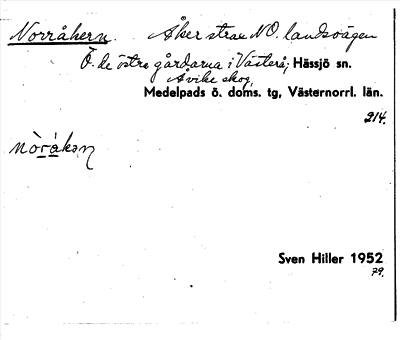 Norråkern. Åker strax NO. landsvägen
Ö. de östra gårdarna i Västerå; Hässjö sn.
Åvike skog,
Medelpads ö. doms. tg, Västernorrl. län.
214.
nòrákən
Sven Hiller 1952
79.